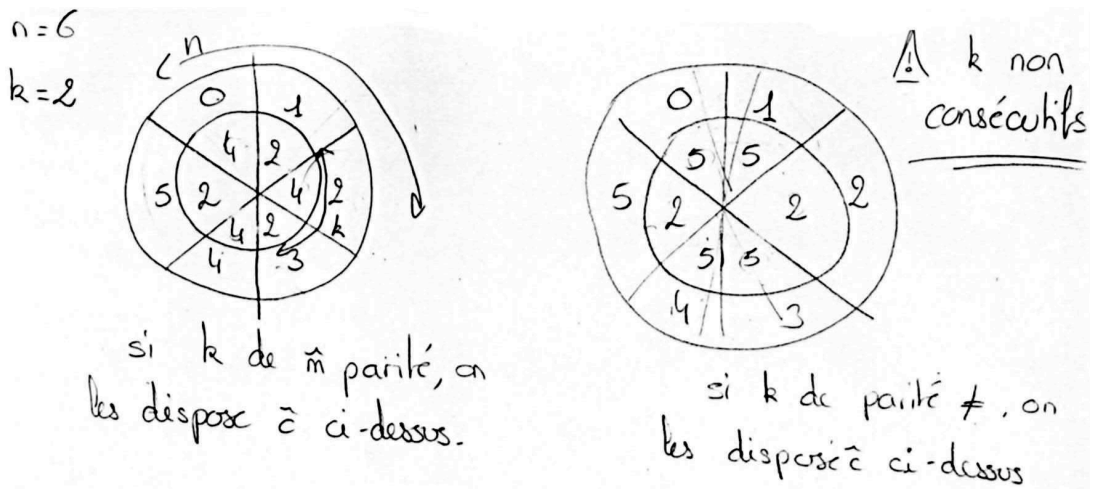 n=6
k=2
n
0 1
4 2
5 2 4 2
4 2 k
4 3
si k de m̂ parité, on
les dispose ĉ ci-dessus.
⚠ k non
consécutifs
0 1
5 5
5 2 2 2
5 5
4 3
si k de parité ≠, on
les dispose ĉ ci-dessus